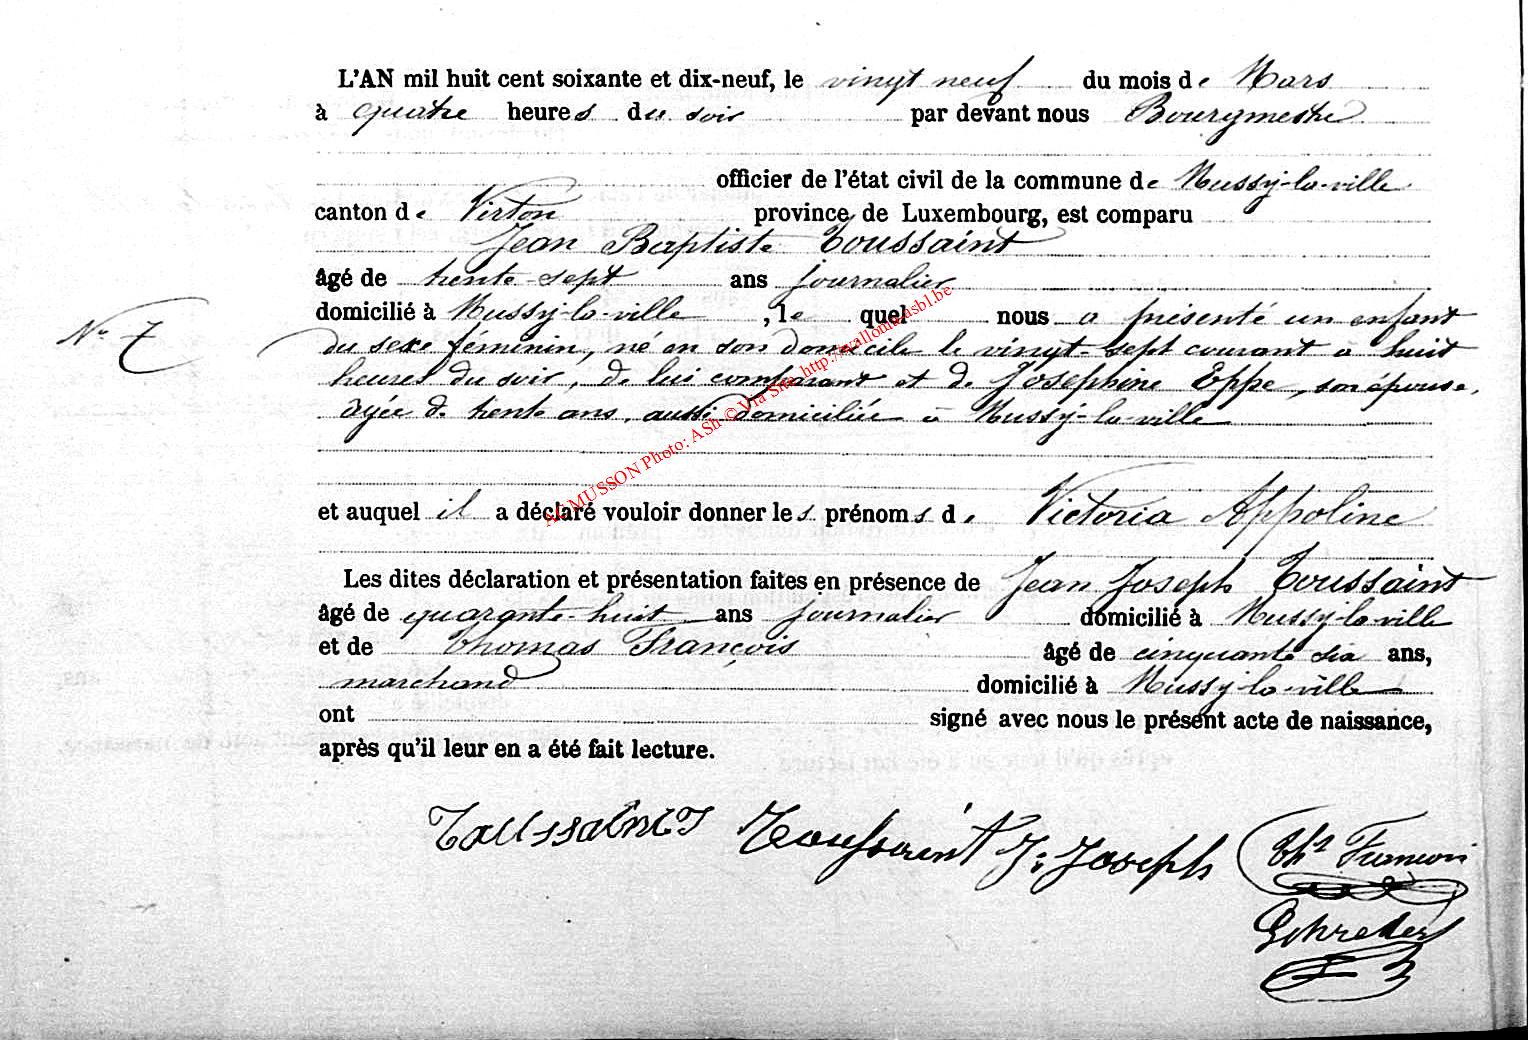 L'AN mil huit cent soixante et dix-neuf, le vingt neuf du mois de Mars
à quatre heures du soir par devant nous Bourgmestre
officier de l'état civil de la commune de Mussy-la-ville
canton de Virton province de Luxembourg, est comparu
Jean Baptiste Toussaint
âgé de trente-sept ans journalier
domicilié à Mussy-la-ville, le quel nous a présenté un enfant
N° 7
du sexe féminin, né en son domicile le vingt-sept courant à huit
heures du soir, de lui comparant et de Joséphine Eppe, son épouse,
âgée de trente ans, aussi domiciliée à Mussy-la-ville
et auquel il a déclaré vouloir donner les prénoms de Victoria Appoline
Les dites déclaration et présentation faites en présence de Jean Joseph Toussaint
âgé de quarante-huit ans journalier domicilié à Mussy-la-ville
et de Thomas François âgé de cinquante six ans,
marchand domicilié à Mussy-la-ville
ont signé avec nous le présent acte de naissance,
après qu'il leur en a été fait lecture.
Toussaint J Toussaint J: Joseph Ths François
Schreder
AC MUSSON Photo: ASh © Via Site http://wallonia-asbl.be